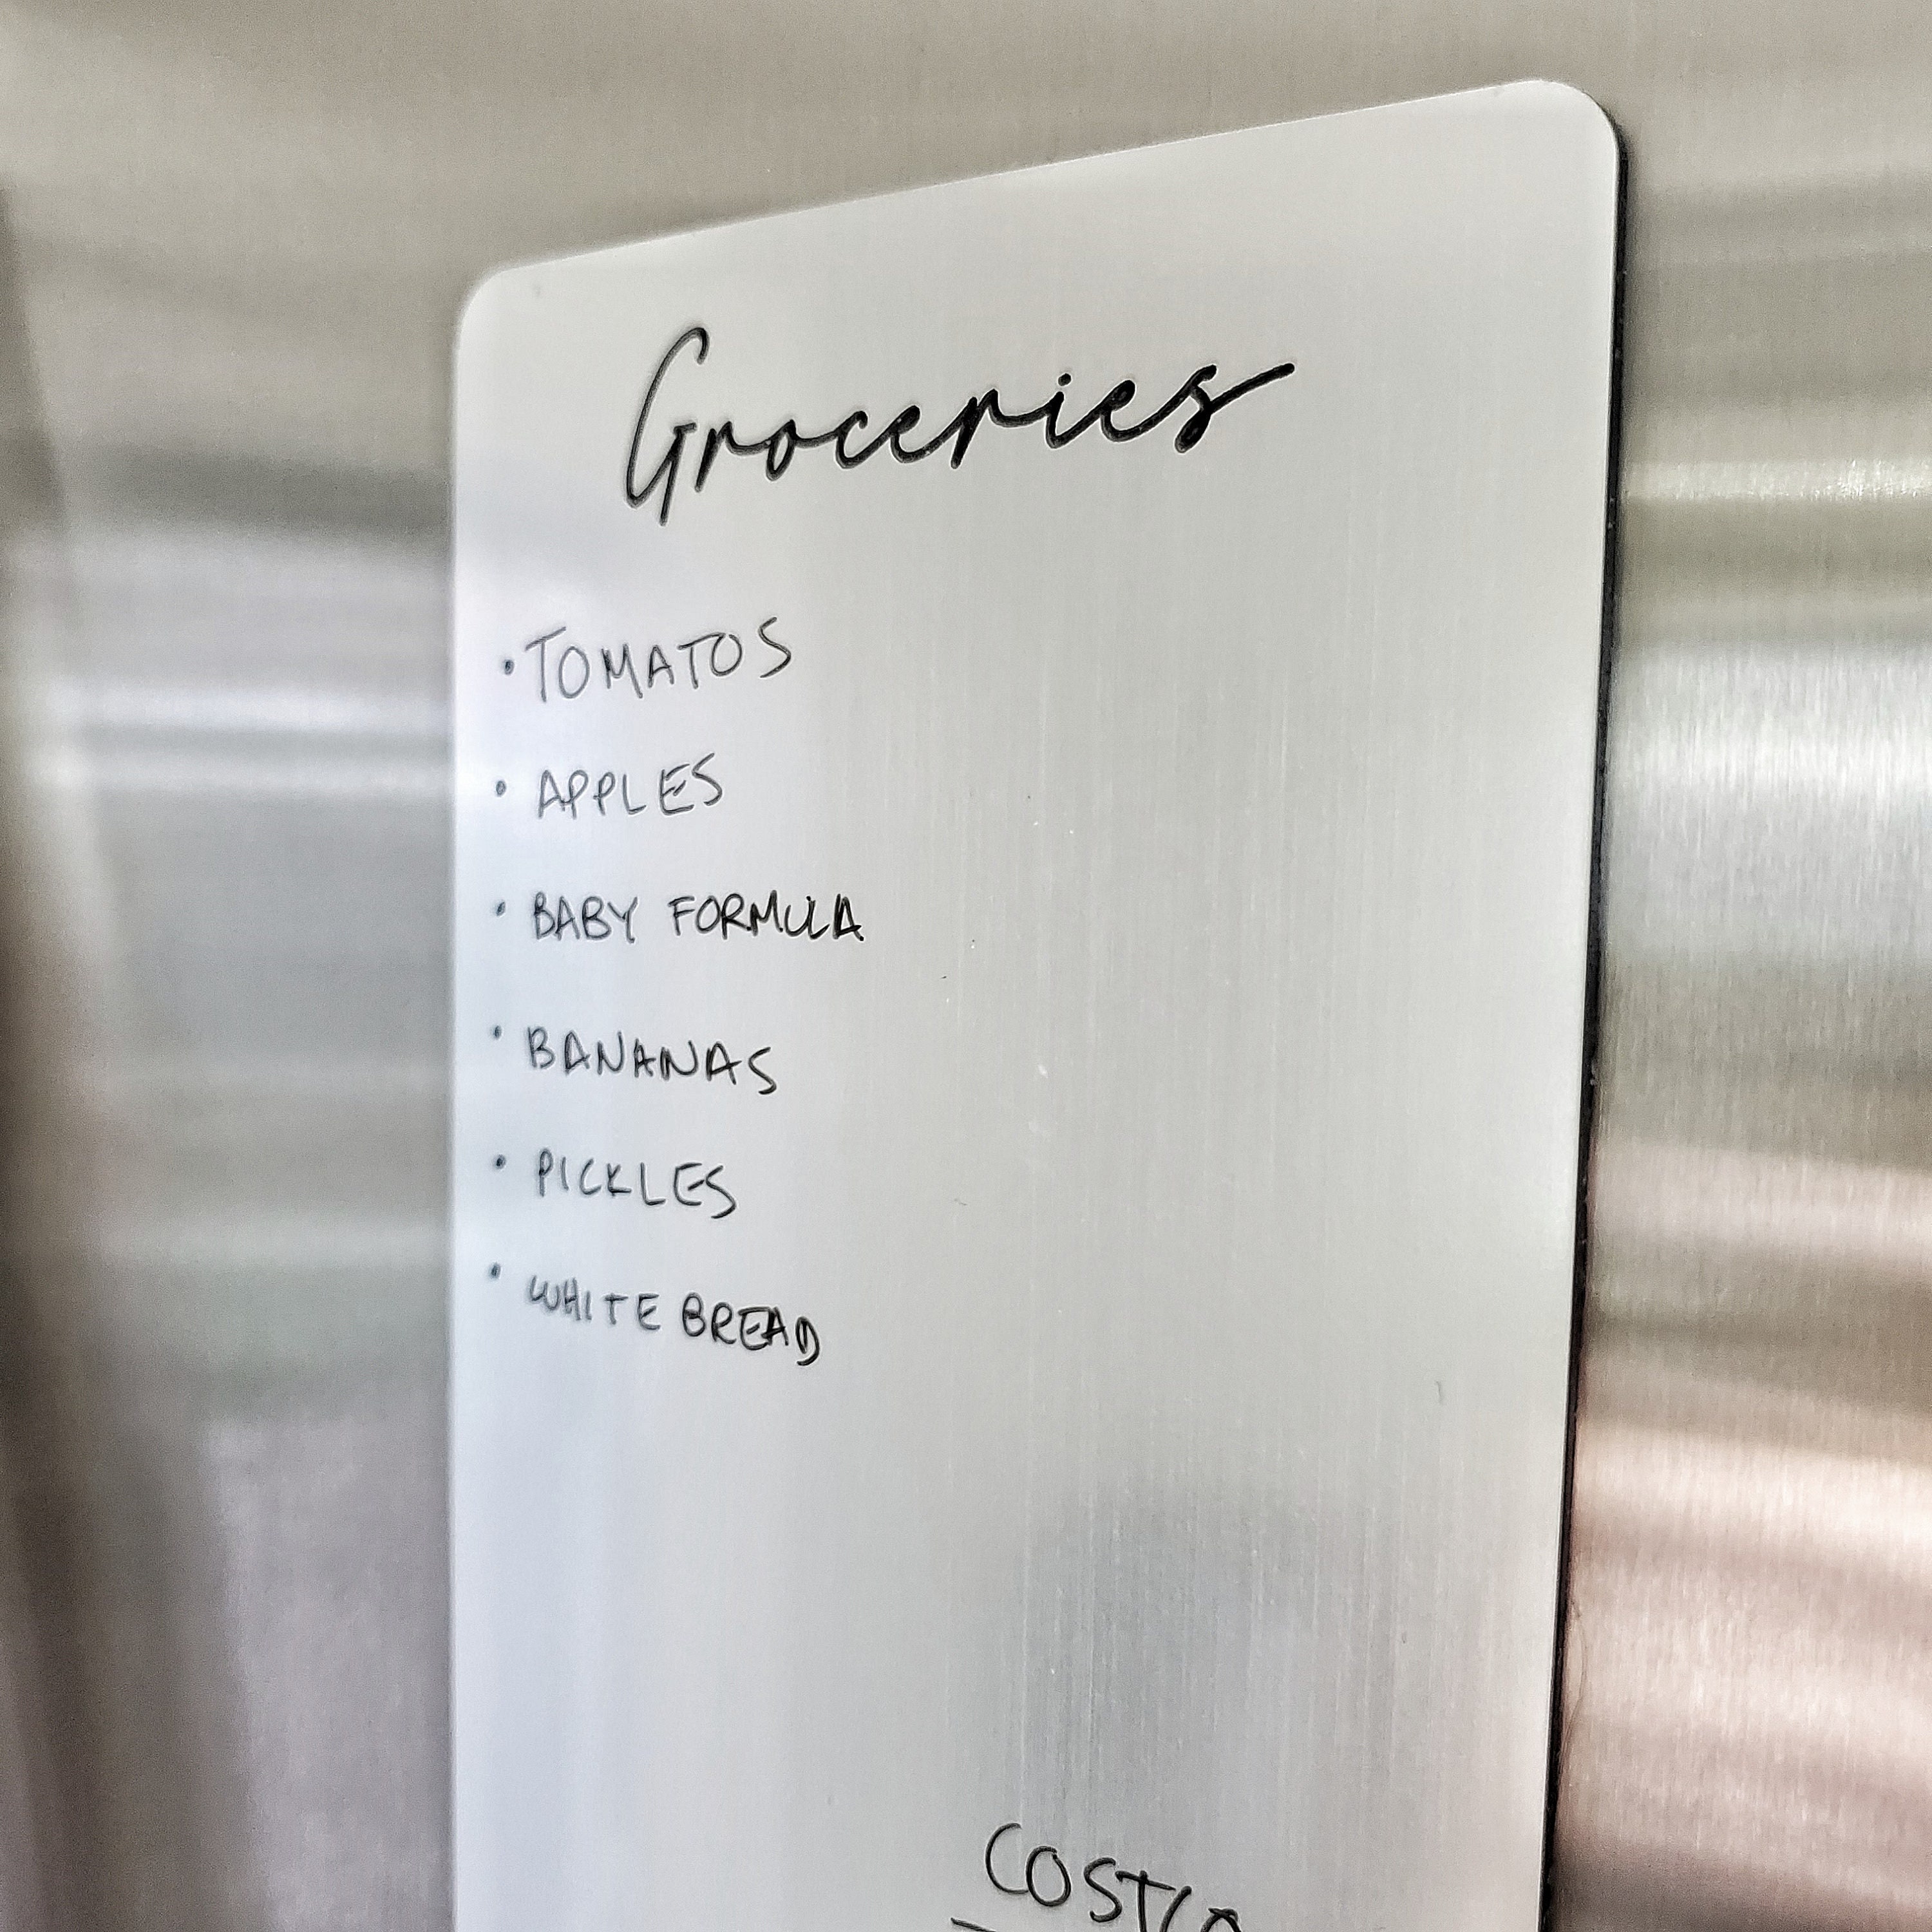 Groceries
• TOMATOS
• APPLES
• BABY FORMULA
• BANANAS
• PICKLES
• WHITE BREAD
COSTCO